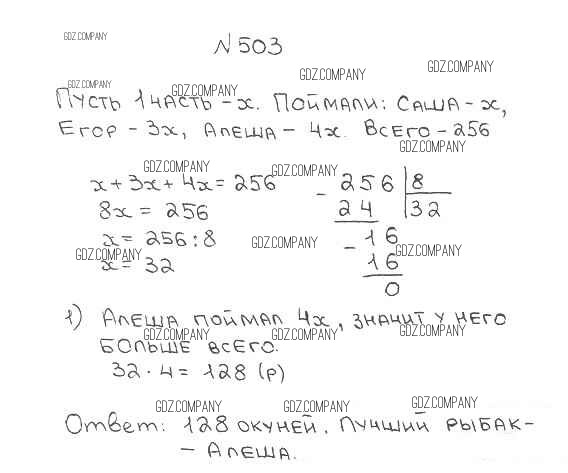 GDZ.COMPANY
N 503
GDZ.COMPANY
GDZ.COMPANY
GDZ.COMPANY
GDZ.COMPANY
Пусть 1 часть – x. Поймали: Саша – x,
Егор – 3x, Алеша – 4x. Всего – 256
GDZ.COMPANY
GDZ.COMPANY
GDZ.COMPANY
x + 3x + 4x = 256
8x = 256
x = 256 : 8
x = 32
GDZ.COMPANY
GDZ.COMPANY
GDZ.COMPANY
- 256 | 8
24 32
- 16
16
0
1) Алеша поймал 4x, значит у него
больше всего.
GDZ.COMPANY
GDZ.COMPANY
GDZ.COMPANY
32 · 4 = 128 (р)
GDZ.COMPANY
GDZ.COMPANY
GDZ.COMPANY
Ответ: 128 окуней. Лучший рыбак –
– Алеша.